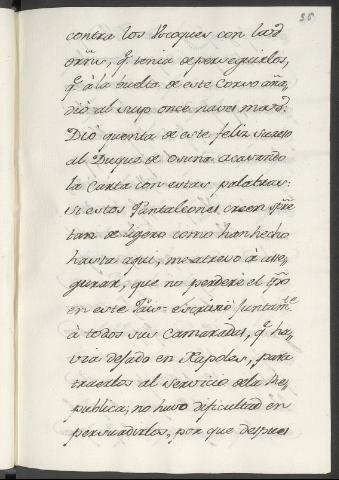 36
contra los Vscoques con las
orñs, q̃ tenia de perseguirlos,
q̃ à la buelta de este Corso aña,,
diò al suyo once naves mas:
Diò quenta de este feliz suceso
al Duque de Osuna acavando
la Carta con estas palabras:
si estos Pantaleones creen
tan de ligero como han hecho
hasta aqui, me atrevo à ase,,
gurar, que no perderè el tpõ
en este Pais= escriviò juntamte.
à todos sus Camaradas, q̃ ha,,
via dejado en Napoles, para
traerlos al servicio de la Re,,
publica; no huvo dificultad en
persuadirlos, por que despues